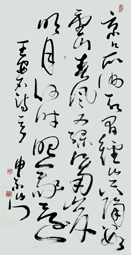 京口瓜洲一水間鐘山只隔數
重山春風又綠江南岸
明月何時照我還
王安石詩一首